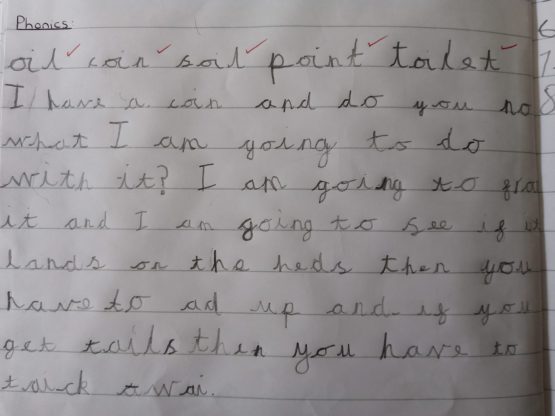 Phonics:
oil coin soil point toilet
I have a coin and do you no
what I am going to do
with it? I am going to fro
it and I am going to see if it
lands on the heds then you
have to ad up and if you
get tails then you have to
taick awai.
6
7
8